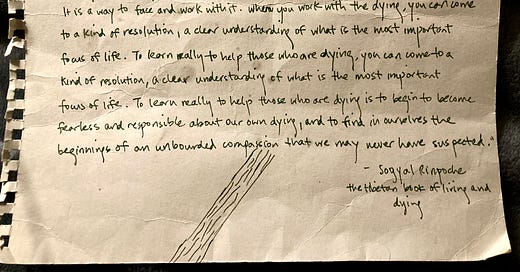 It is a way to face and work with it. Where you work with the dying, you can come
to a kind of resolution, a clear understanding of what is the most important
focus of life. To learn really to help those who are dying, you can come to a
kind of resolution, a clear understanding of what is the most important
focus of life. To learn really to help those who are dying is to begin to become
fearless and responsible about our own dying, and to find in ourselves the
beginnings of an unbounded compassion that we may never have suspected."
- Sogyal Rinpoche
the Tibetan book of living and
dying